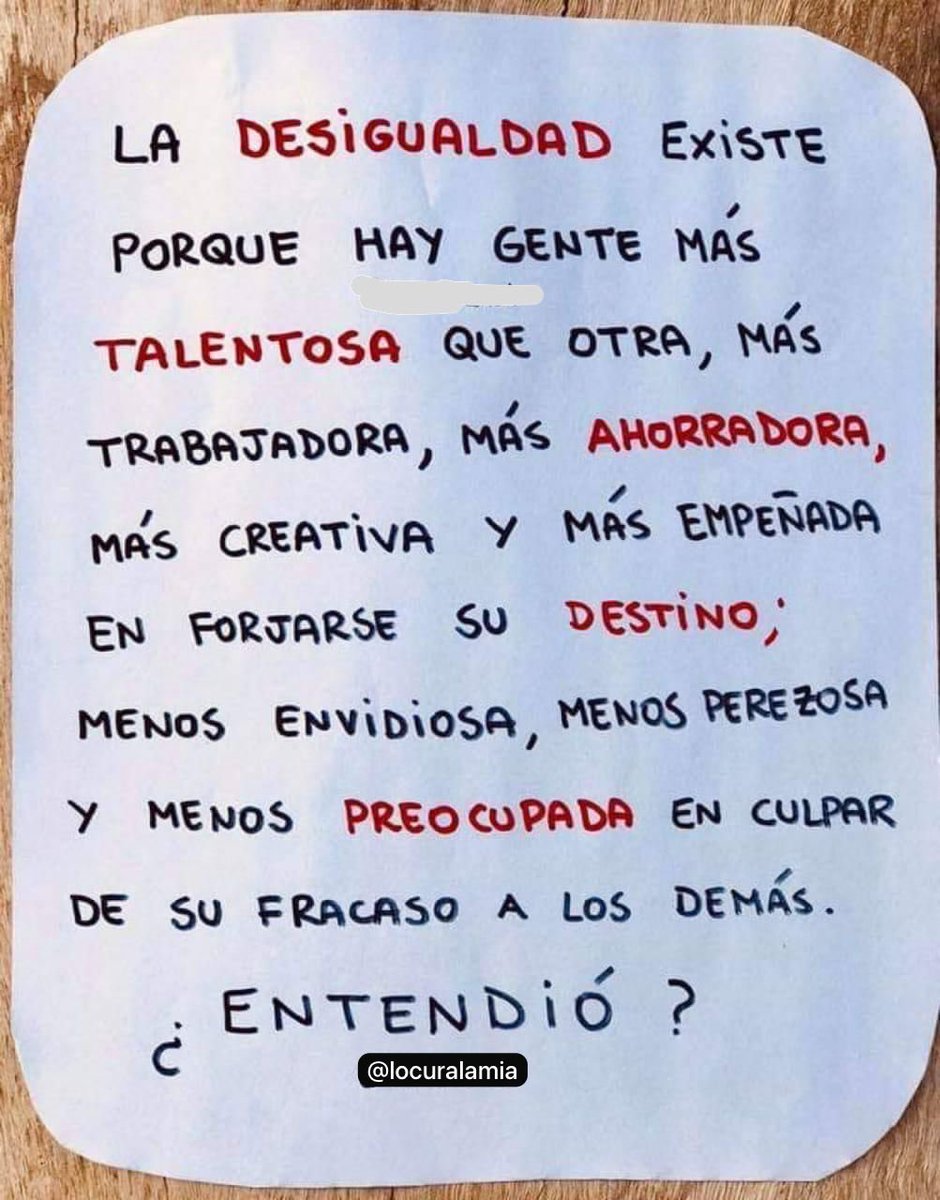 LA DESIGUALDAD EXISTE
PORQUE HAY GENTE MÁS
TALENTOSA QUE OTRA, MÁS
TRABAJADORA, MÁS AHORRADORA,
MÁS CREATIVA Y MÁS EMPEÑADA
EN FORJARSE SU DESTINO;
MENOS ENVIDIOSA, MENOS PEREZOSA
Y MENOS PREOCUPADA EN CULPAR
DE SU FRACASO A LOS DEMÁS.
¿ENTENDIÓ?
@locuralamia